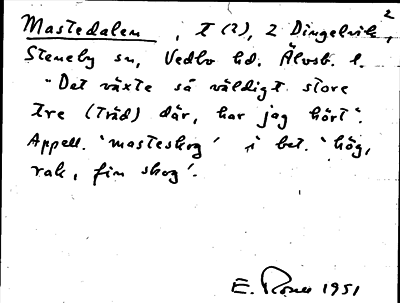 2
Mastedalen, t (?), 2 Dingelvik,
Steneby sn, Vedbo hd. Älvsb. l.
"Det växte så väldigt store
tre (träd) där, har jag hört".
Appell. 'masteskog' i bet. 'hög,
rak, fin skog'.
E. Rosell 1951